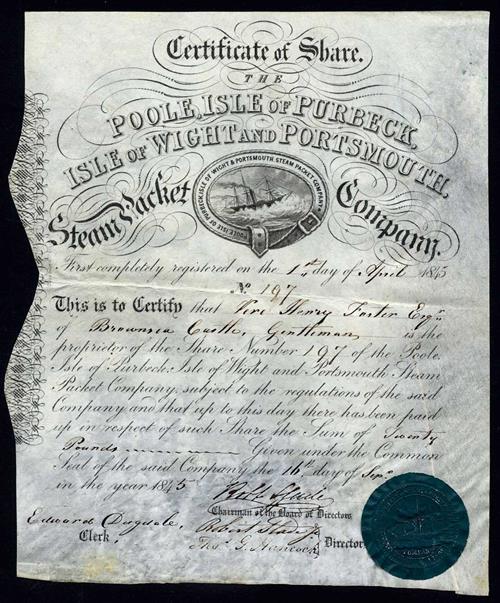 Certificate of Share.
THE
POOLE, ISLE OF PURBECK,
ISLE OF WIGHT AND PORTSMOUTH,
Steam Packet Company.
POOLE, ISLE OF PURBECK, ISLE OF WIGHT & PORTSMOUTH STEAM PACKET COMPANY
First completely registered on the 1st day of April 1845
No 197
This is to Certify that Vere Henry Foster Esqr.
of Brownsea Castle, Gentleman is the
proprietor of the Share Number 197 of the Poole,
Isle of Purbeck, Isle of Wight and Portsmouth Steam
Packet Company, subject to the regulations of the said
Company and that up to this day there has been paid
up in respect of such Share the Sum of Twenty
Pounds Given under the Common
Seal of the said Company the 16th day of Sepr.
in the year 1845
Robt Slade
Chairman of the Board of Directors
Edward Dugdale, Robert Slade Jr
Clerk. Thos. G. Hancock Director